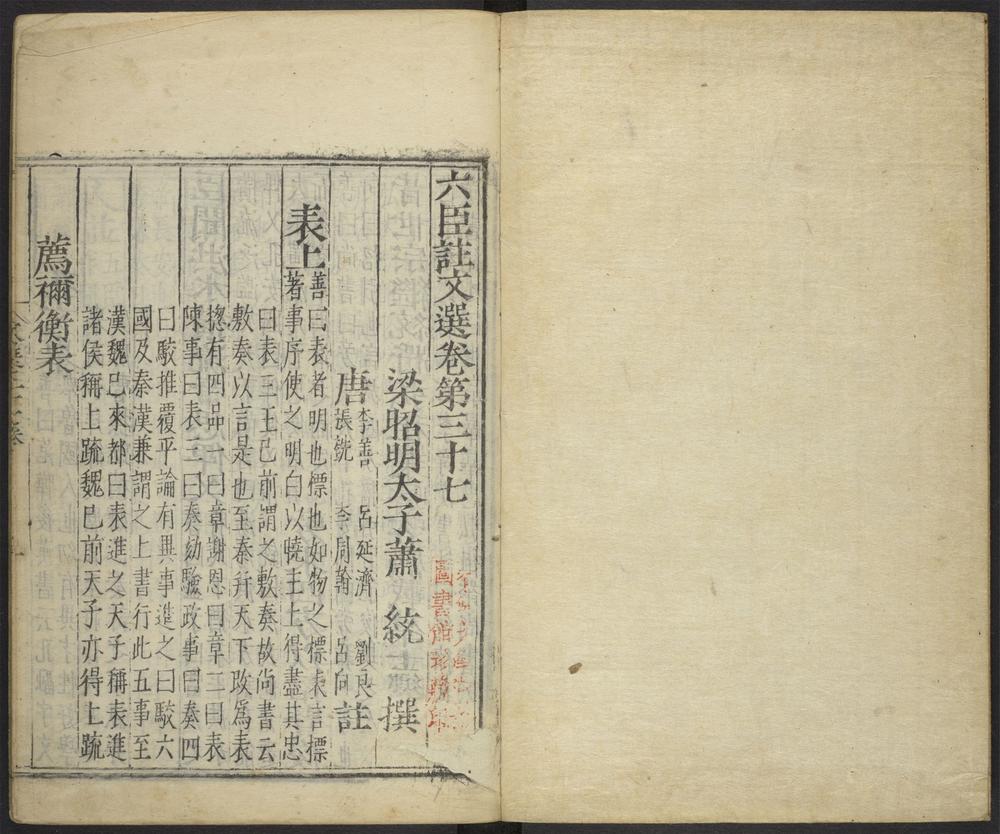 六臣註文選卷第三十七
梁昭明太子蕭 統 撰
唐 李善 呂延濟 劉良
張銑 李周翰 呂向 註
表上 善曰表者明也標也如物之標表言標
著事序使之明白以曉主上得盡其忠
曰表三王已前謂之敷奏故尚書云
敷奏以言是也至秦并天下改爲表
揔有四品一曰章謝恩曰章二曰表
陳事曰表三曰奏劾驗政事曰奏四
曰駮推覆平論有異事進之曰駮六
國及秦漢兼謂之上書行此五事至
漢魏已來都曰表進之天子稱表進
諸侯稱上疏魏已前天子亦得上疏
薦禰衡表